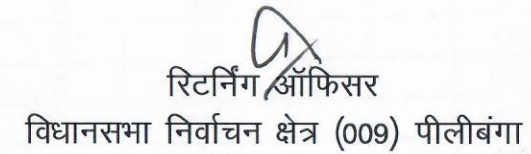 रिटर्निंग ऑफिसर
विधानसभा निर्वाचन क्षेत्र (009) पीलीबंगा